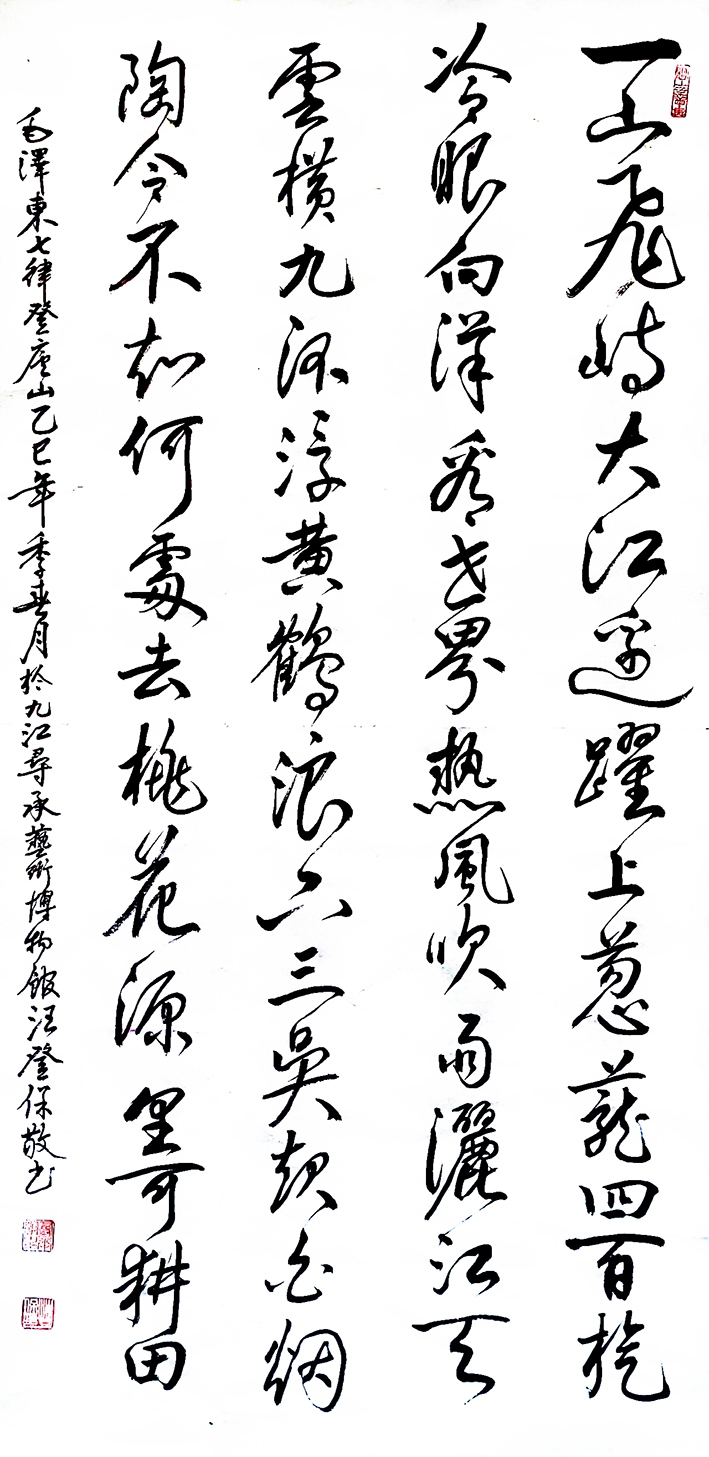 一山飛峙大江邊躍上蔥蘢四百旋
冷眼向洋看世界熱風吹雨灑江天
雲橫九派浮黃鶴浪下三吳起白烟
陶令不知何處去桃花源里可耕田
毛澤東七律登廬山乙巳年季春月於九江尋承藝術博物館汪登保敬书